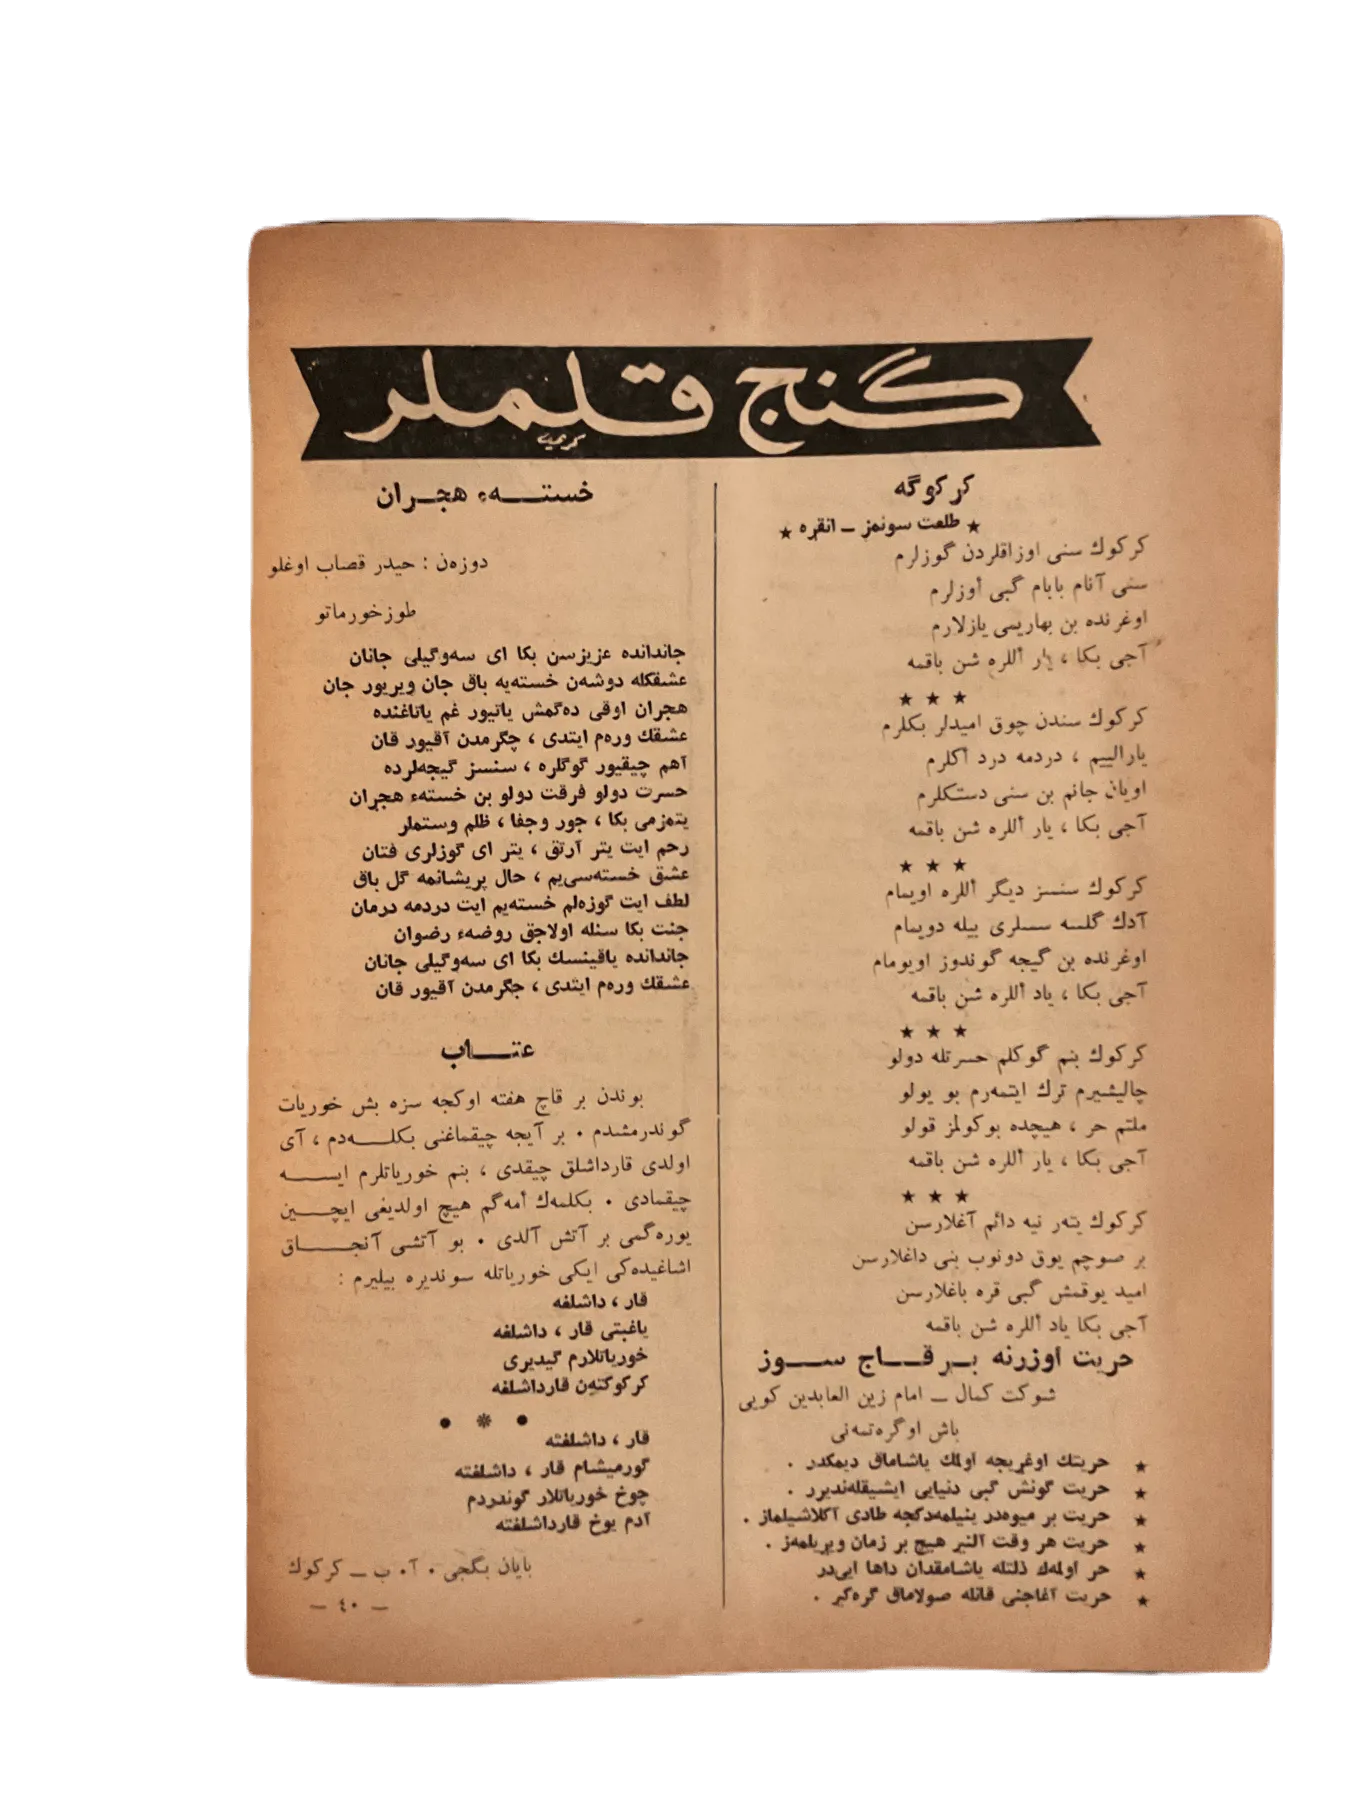 گنج قلملر
كركوگه
★ طلعت سونمز ــ انقره ★
كركوك سنی اوزاقلردن گوزلرم
سنی آنام بابام گبی أوزلرم
اوغرنده بن بهاریمی یازلارم
آجی بكا ، یار أللره شن باقمه
★ ★ ★
كركوك سندن چوق امیدلر بكلرم
یارالییم ، دردمه درد أكلرم
اویان جانم بن سنی دستكلرم
آجی بكا ، یار أللره شن باقمه
★ ★ ★
كركوك سنسز دیگر أللره اویمام
آدك گلسه سسلری بیله دویمام
اوغرنده بن گیجه گوندوز اویومام
آجی بكا ، یاد أللره شن باقمه
★ ★ ★
كركوك بنم گوكلم حسرتله دولو
چالیشیرم ترك ایتمەرم بو یولو
ملتم حر ، هیچده بوكولمز قولو
آجی بكا ، یار أللره شن باقمه
★ ★ ★
كركوك یتەر نیه دائم آغلارسن
بر صوچم یوق دونوب بنی داغلارسن
امید یوقمش گبی قره باغلارسن
آجی بكا یاد أللره شن باقمه
حریت أوزرنه بـر قــاج ســوز
شوكت كمال ــ امام زین العابدین كویی
باش اوگرەتمەنی
★ حریتك اوغریجه اولمك یاشاماق دیمكدر .
★ حریت گونش گبی دنیایی ایشیقلەندیرر .
★ حریت بر میوەدر ینیلمەدكجه طادی آكلاشیلماز .
★ حریت هر وقت آلنیر هیچ بر زمان ویریلمەز .
★ حر اولمەك ذلتله یاشامقدان داها اییدر
★ حریت آغاجنی قانله صولاماق گرەكیر .
خستــهء هجـران
دوزەن : حیدر قصاب اوغلو
طوزخورماتو
جاندانده عزیزسن بكا ای سەوگیلی جانان
عشقكله دوشەن خستەیه باق جان ویریور جان
هجران اوقی دەگمش یاتیور غم یاتاغنده
عشقك ورەم ایتدی ، چگرمدن آقیور قان
آهم چیقیور گوگلره ، سنسز گیجەلرده
حسرت دولو فرقت دولو بن خستهء هجران
یتەزمی بكا ، جور وجفا ، ظلم وستملر
رحم ایت یتر آرتق ، یتر ای گوزلری فتان
عشق خستەسییم ، حال پریشانمه گل باق
لطف ایت گوزەلم خستەیم ایت دردمه درمان
جنت بكا سنله اولاجق روضهء رضوان
جاندانده یاقینسك بكا ای سەوگیلی جانان
عشقك ورەم ایتدی ، جگرمدن آقیور قان
عتــاب
بوندن بر قاچ هفته اوكجه سزه بش خوریات
گوندرمشدم . بر آیجه چیقماغنی بكلــەدم ، آی
اولدی قارداشلق چیقدی ، بنم خوریاتلرم ایســه
چیقمادی . بكلمەك أمەگم هیچ اولدیغی ایچــین
یورەگمی بر آتش آلدی . بو آتشی آنجــاق
اشاغیدەكی ایكی خوریاتله سوندیره بیلیرم :
قار ، داشلغه
یاغبتی قار ، داشلغه
خوریاتلارم گیدیری
كركوكتەن قارداشلغه
• ❋ •
قار ، داشلغته
گورمیشام قار ، داشلغته
چوخ خوریاتلار گوندردم
آدم یوخ قارداشلغته
بایان بگجی . آ . ب ــ كركوك
ــ ٤٠ ــ